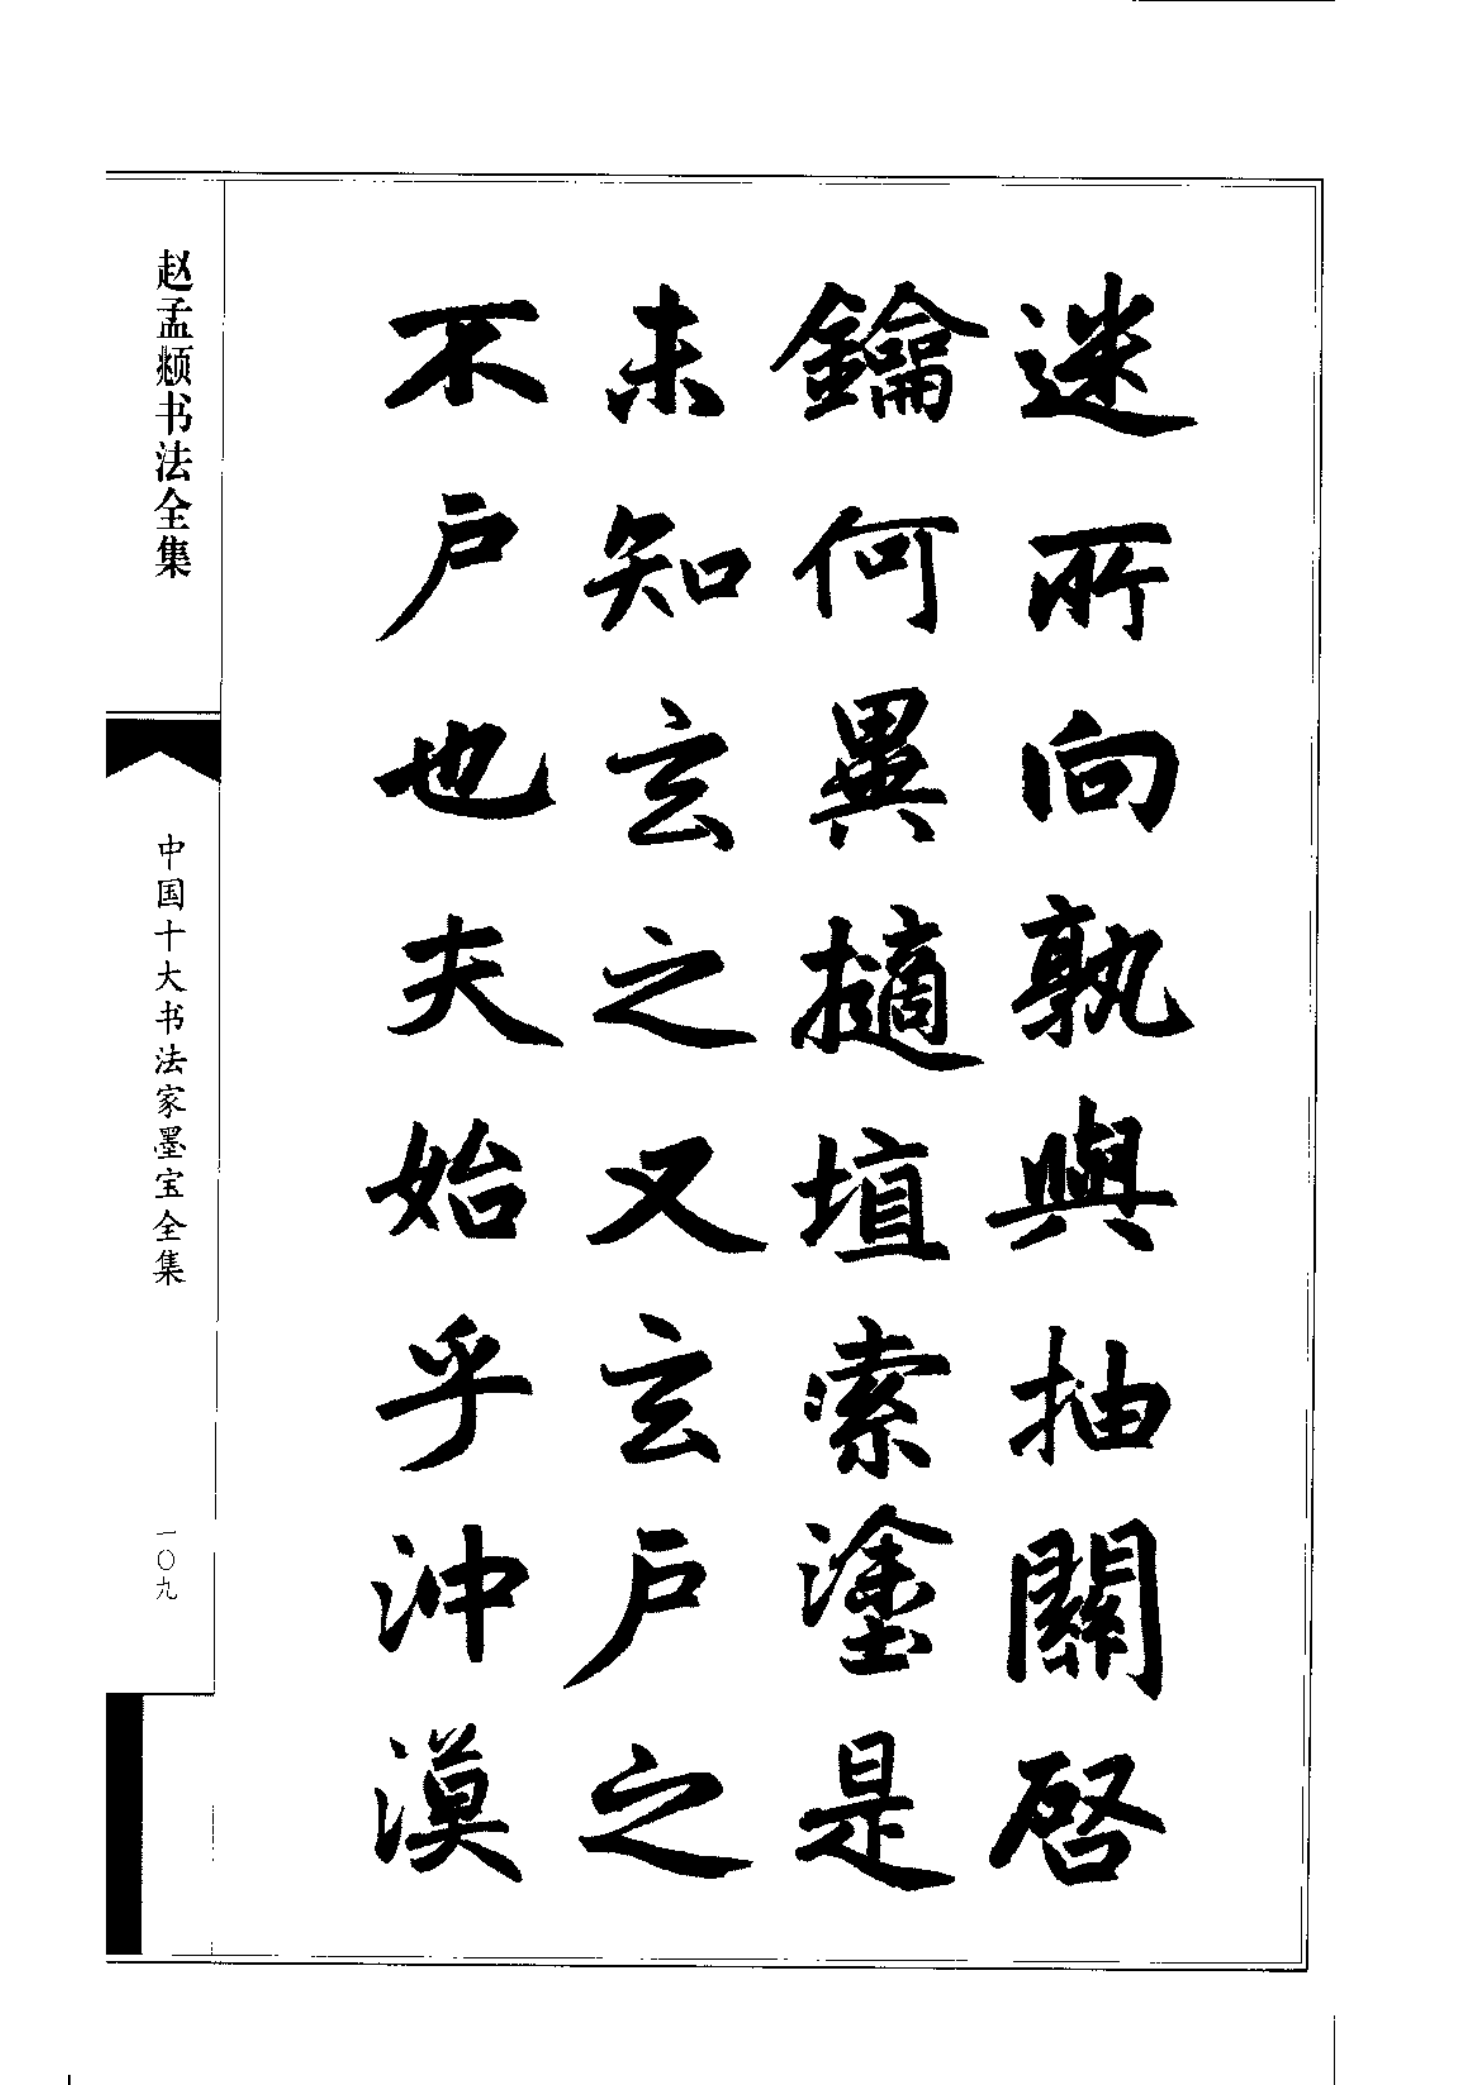 迷所向孰與抽關啓
鑰何異擿埴索塗是
未知玄之又玄户之
不户也夫始乎沖漠
赵孟頫书法全集
中国十大书法家墨宝全集
一〇九